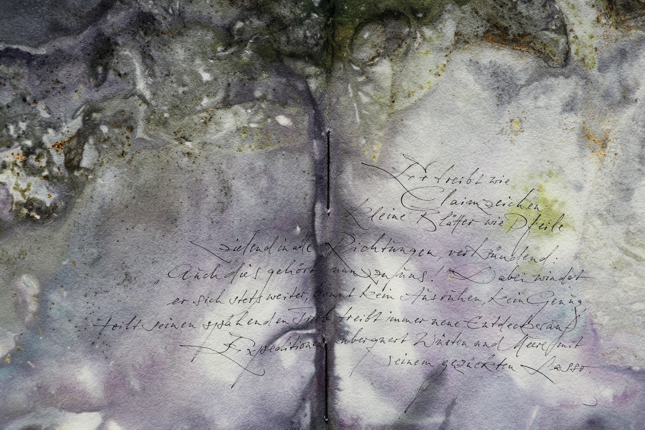 Er treibt wie
Claimzeichen
kleine Blätter wie Pfeile
zielend in alle Richtungen, verkündend:
„Auch dies gehört nun zu uns!" Dabei windet
er sich stets weiter, kennt kein Ausruhen, kein Genug,
teilt seinen spähenden treibt immer neue Entdecker
Expeditionen, überquert Wüsten und Meere mit
seinem gezückten Lasso